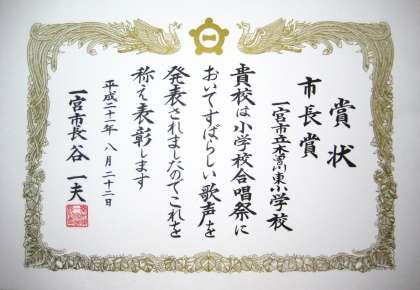 賞状
市長賞
一宮市立木曽川東小学校
貴校は小学校合唱祭に
おいてすばらしい歌声を
発表されましたのでこれを
称え表彰します
平成二十一年八月二十二日
一宮市長 谷 一夫